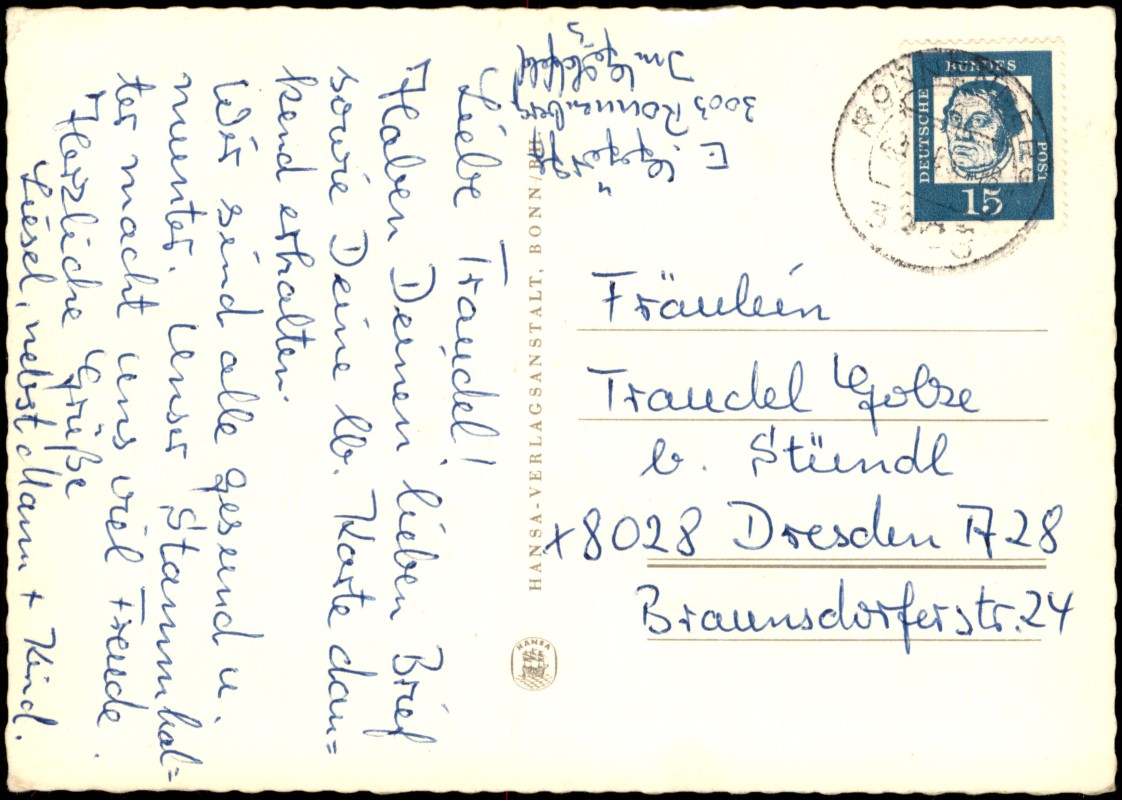 Liebe Traudel!
Haben Deinen lieben Brief
sowie Deine lb. Karte dan=
kend erhalten.
Wir sind alle gesund u.
munter. Unser Stammhal=
ter macht uns viel Freude.
Herzliche Grüße
Liesel, nebst Mann + Kind.
E.
3003 Ronnenberg
Im
HANSA-VERLAGSANSTALT, BONN/RH.
HANSA
DEUTSCHE
BUNDES
POST
15
Fräulein
Traudel Golze
b. Stündl
x8028 Dresden A28
Braunsdorferstr. 24